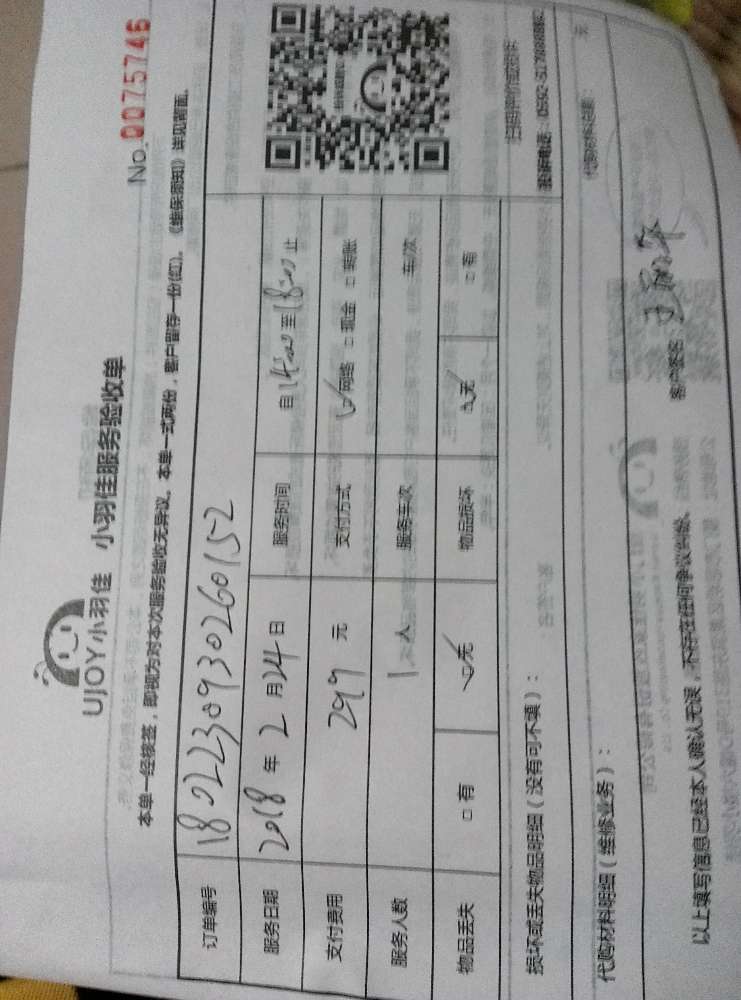 UJOY小羽佳 小羽佳服务验收单
No. 0075746
本单一经核签，即视为对本次服务验收无异议。本单一式两份，客户留存一份(红)。《维保须知》详见背面。
订单编号 1802230930260152
服务日期 2018 年 2 月 24 日 服务时间 自 14:00 至 18:00 止
支付费用 299 元 支付方式 ☑网络 □现金 □转账
服务人数 1 人 服务车次 车/次
物品丢失 □有 ☑无 物品损坏 ☑无 □有
损坏或丢失物品明细（没有可不填）：
代购材料明细（维修业务）： 元
以上填写信息已经本人确认无误，不存在任何争议纠纷。 客户签名：